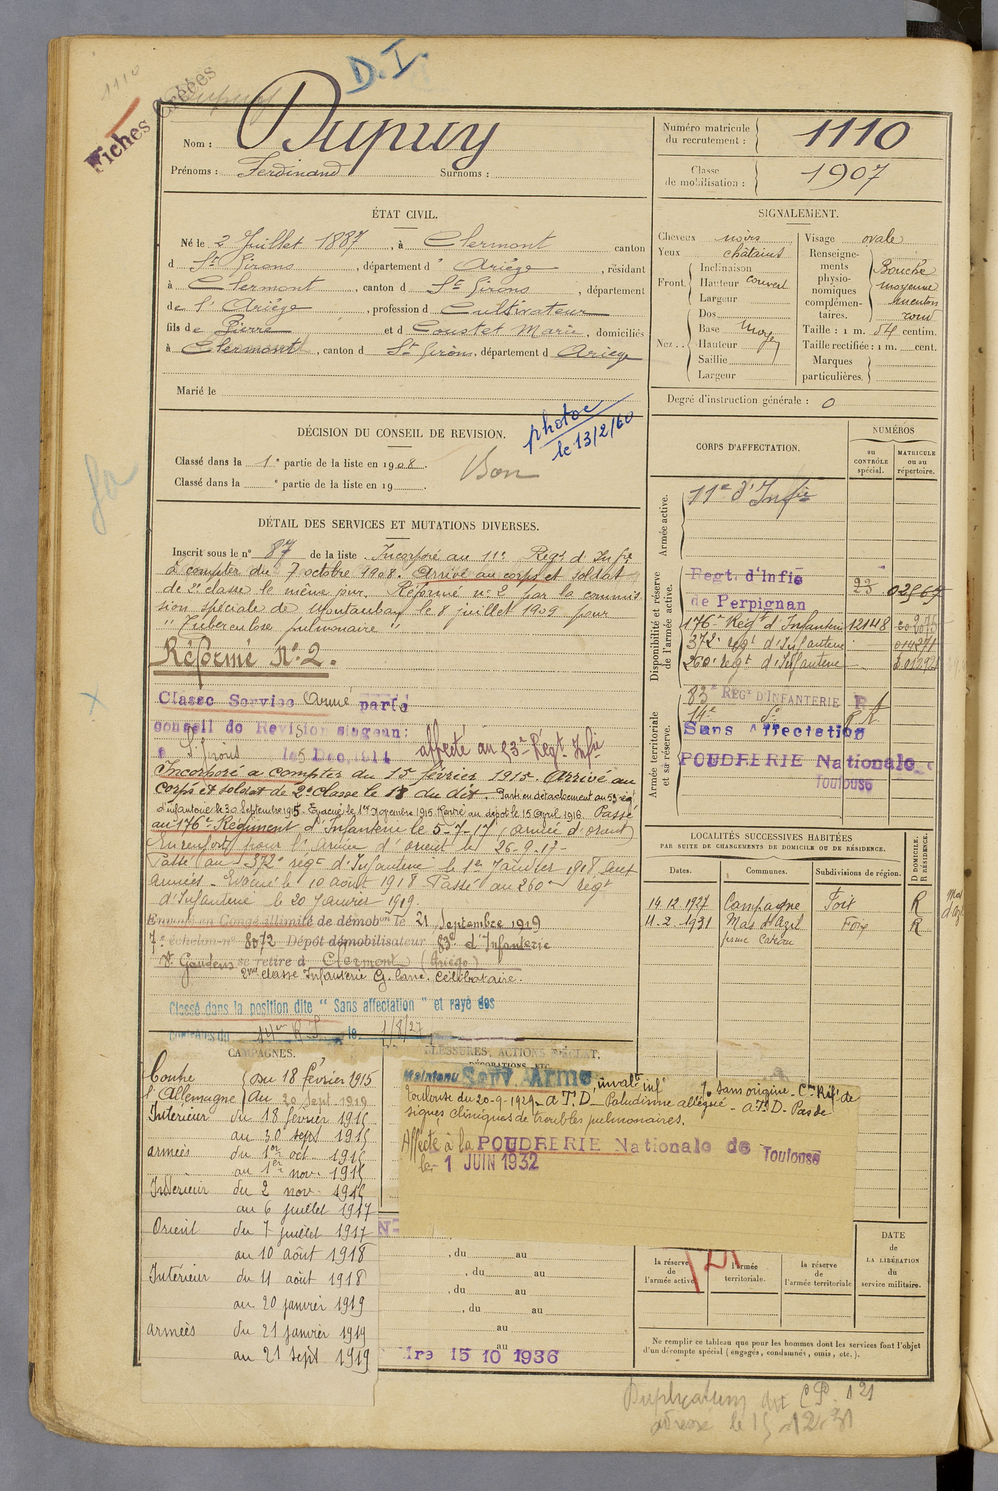 1110
Fiches Créées
D.I.
Nom : Dupuy
Prénoms : Ferdinand Surnoms :
Numéro matricule du recrutement : 1110
Classe de mobilisation : 1907
ÉTAT CIVIL.
Né le 2 Juillet 1887, à Clermont canton
d St Girons, département d' Ariège, résidant
à Clermont, canton d St Girons, département
de l' Ariège, profession d Cultivateur
fils de Pierre et d Coustet Marie, domiciliés
à Clermont, canton d St Girons, département d Ariège
Marié le
SIGNALEMENT.
Cheveux noirs
Yeux châtains
Front. Inclinaison
Hauteur couvert
Largeur
Nez.. Dos
Base moyen
Hauteur
Saillie
Largeur
Visage ovale
Renseignements physionomiques complémentaires. Bouche moyenne menton rond
Taille : 1 m. 54 centim.
Taille rectifiée : 1 m. cent.
Marques particulières.
Degré d'instruction générale : 0
photoc
le 13/2/60
DÉCISION DU CONSEIL DE REVISION.
Classé dans la 1e partie de la liste en 1908. Bon
Classé dans la e partie de la liste en 19
DÉTAIL DES SERVICES ET MUTATIONS DIVERSES.
Inscrit sous le n° 87 de la liste. Incorporé au 11e Regt d'Infie
à compter du 7 octobre 1908. Arrivé au corps et soldat
de 2e classe le même jour. Réformé n° 2 par la commis
sion spéciale de Montauban le 8 juillet 1909 pour
"Tuberculose pulmonaire"
Réformé N° 2.
Classe Service Armé par le
conseil de Revision siegeant
a St Girons le 5 Dec. 1914 affecté au 23e Regt Infie
Incorporé à compter du 15 février 1915. Arrivé au
corps et soldat de 2e classe le 18 du dit. Parti en détachement au 53e régt
d'infanterie le 30 Septembre 1915. Evacué le 1er Novembre 1915. Rentré au dépôt le 15 avril 1916. Passé
au 176e Régiment d'Infanterie le 5-7-17 (armée d'orient)
En renfort pour l'armée d'orient le 26-9-17-
Passé au 372e régt d'Infanterie le 1er Janvier 1918 aux
armées - Evacué le 10 août 1918 Passé au 260e régt
d'Infanterie le 20 Janvier 1919.
Envoyé en Congé illimité de démobon le 21 Septembre 1919
7e échelon n° 8072 Dépôt démobilisateur 83e d'Infanterie
St Gaudens se retire à Clermont (Ariège)
2me classe Infanterie Célibataire.
Classé dans la position dite "Sans affectation" et rayé des
contrôles du 14e R.I. le 1/8/27
CORPS D'AFFECTATION.
NUMÉROS
au CONTRÔLE spécial.
MATRICULE ou au répertoire.
Armée active.
11e d'Infie
Disponibilité et réserve de l'armée active.
Regt. d'Infie
de Perpignan
23
176e Regt d'Infanterie 12148
372e régt d'Infanterie 014271
260e régt d'Infanterie
Armée territoriale et sa réserve.
83e REGt D'INFANTERIE
14e do
Sans Affectation
POUDRERIE Nationale de
Toulouse
LOCALITÉS SUCCESSIVES HABITÉES
PAR SUITE DE CHANGEMENTS DE DOMICILE OU DE RÉSIDENCE.
Dates. Communes. Subdivisions de région. D DOMICILE. R RÉSIDENCE.
14.12.1927 Campagne Foix R
11.2.1931 Mas d'Azil Foix R
CAMPAGNES.
Contre l'Allemagne du 18 février 1915
au 20 Sept. 1919
Intérieur du 18 février 1915
au 30 sept 1915
armées du 1er oct. 1915
au 1er nov. 1915
Intérieur du 2 nov. 1915
au 6 juillet 1917
Orient du 7 juillet 1917
au 10 août 1918
Intérieur du 11 août 1918
au 20 janvier 1919
armées du 21 janvier 1919
au 21 sept 1919
BLESSURES, ACTIONS D'ÉCLAT,
DÉCORATIONS, ETC.
Maintenu Serv. Armé, invalté inf. sans origine - Con Réfe de
Toulouse du 20-9-1929 - A.T.D. Paludisme allégué - A.T.D. Pas de
signes cliniques de troubles pulmonaires.
Affecté à la POUDRERIE Nationale de Toulouse
le 1 JUIN 1932
, du au
, du au
, du au
, du au
au
au
15 10 1936
la réserve de l'armée active
l'armée territoriale.
la réserve de l'armée territoriale
DATE de LA LIBÉRATION du service militaire.
Ne remplir ce tableau que pour les hommes dont les services font l'objet
d'un décompte spécial (engagés, condamnés, omis, etc.).
Duplicatum du C.P. 121